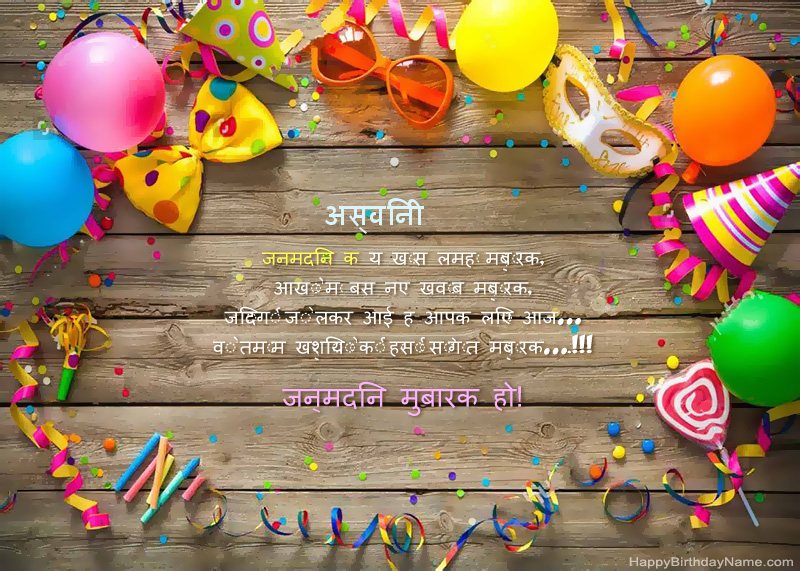 अस्वनिी
जनमदनि क य खास लमह मबारक,
आखों म बस नए खवाब मबारक,
जदिंगी जो लेकर आई ह आपक लएि आज...
वो तमाम खशयिों की हसीं सौगात मबारक...!!!
जन्मदनि मुबारक हो!
HappyBirthdayName.com